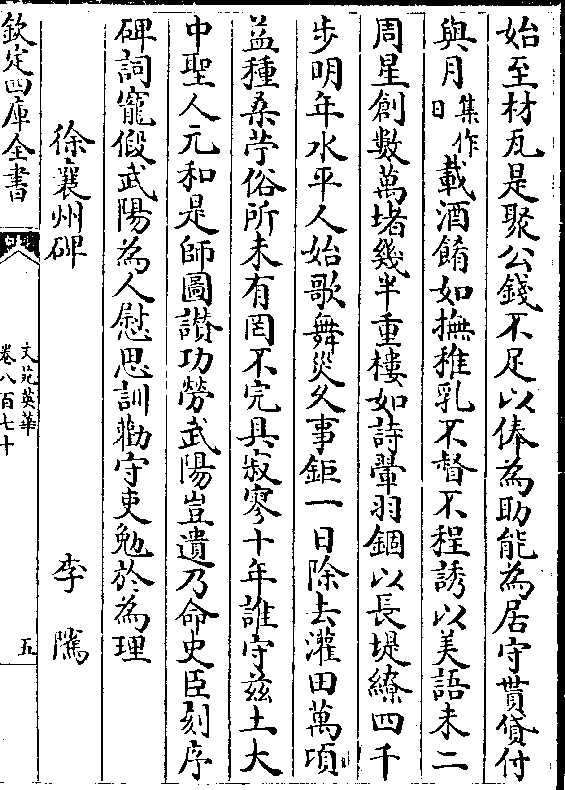 始至材瓦是聚公錢不足以俸為助能為居守貰貸付
與月集作日載酒餚如撫稚乳不督不程誘以美語未二
周星創數萬堵幾半重樓如詩翬羽錮以長堤繚四千
步明年水平人始歌舞災久事鉅一日除去灌田萬項
益種桑苧俗所未有罔不完具寂寥十年誰守茲土大
中聖人元和是師圖讚功勞武陽豈遺乃命史臣刻序
碑詞寵假武陽為人慰思訓勸守吏勉於為理
徐襄州碑 李騭
欽定四庫全書
文苑英華
卷八百七十
五